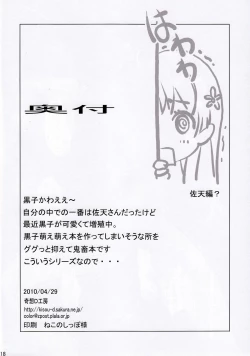 はわわー
奥付
佐天編？
黒子かわええ～
自分の中での一番は佐天さんだったけど
最近黒子が可愛くて増殖中。
黒子萌え萌え本を作ってしまいそうな所を
ググっと抑えて鬼畜本です
こういうシリーズなので・・・
2010/04/29
奇想D工房
http://kisou-d.sakura.ne.jp/
color@cpost.plala.or.jp
印刷　ねこのしっぽ様
18